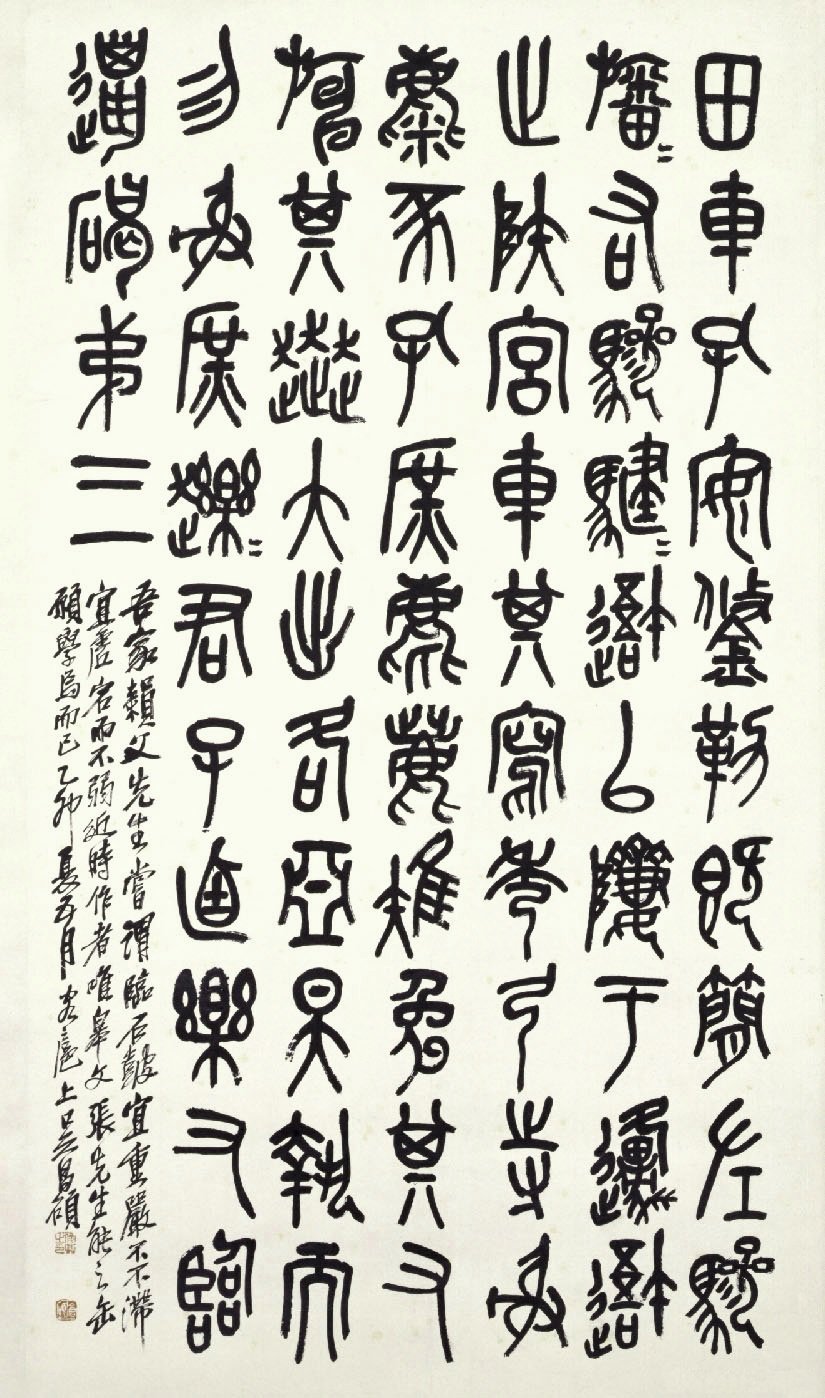 田車孔安鋚勒既簡左驂
旛〻右驂騝〻䢔以隮于邍䢔
止陜宮車其寫秀弓寺射
麋豕孔庶麀鹿雉兔其又
其大出各亞昊執而
勿射庶䟏〻君子逌樂又臨
邋碣弟三
吾家賴文先生嘗謂臨石鼓宜重嚴而不滯
宜虛宕而不弱近時作者唯皋文張先生能之缶
願學焉而已乙卯夏五月客滬上吳昌碩